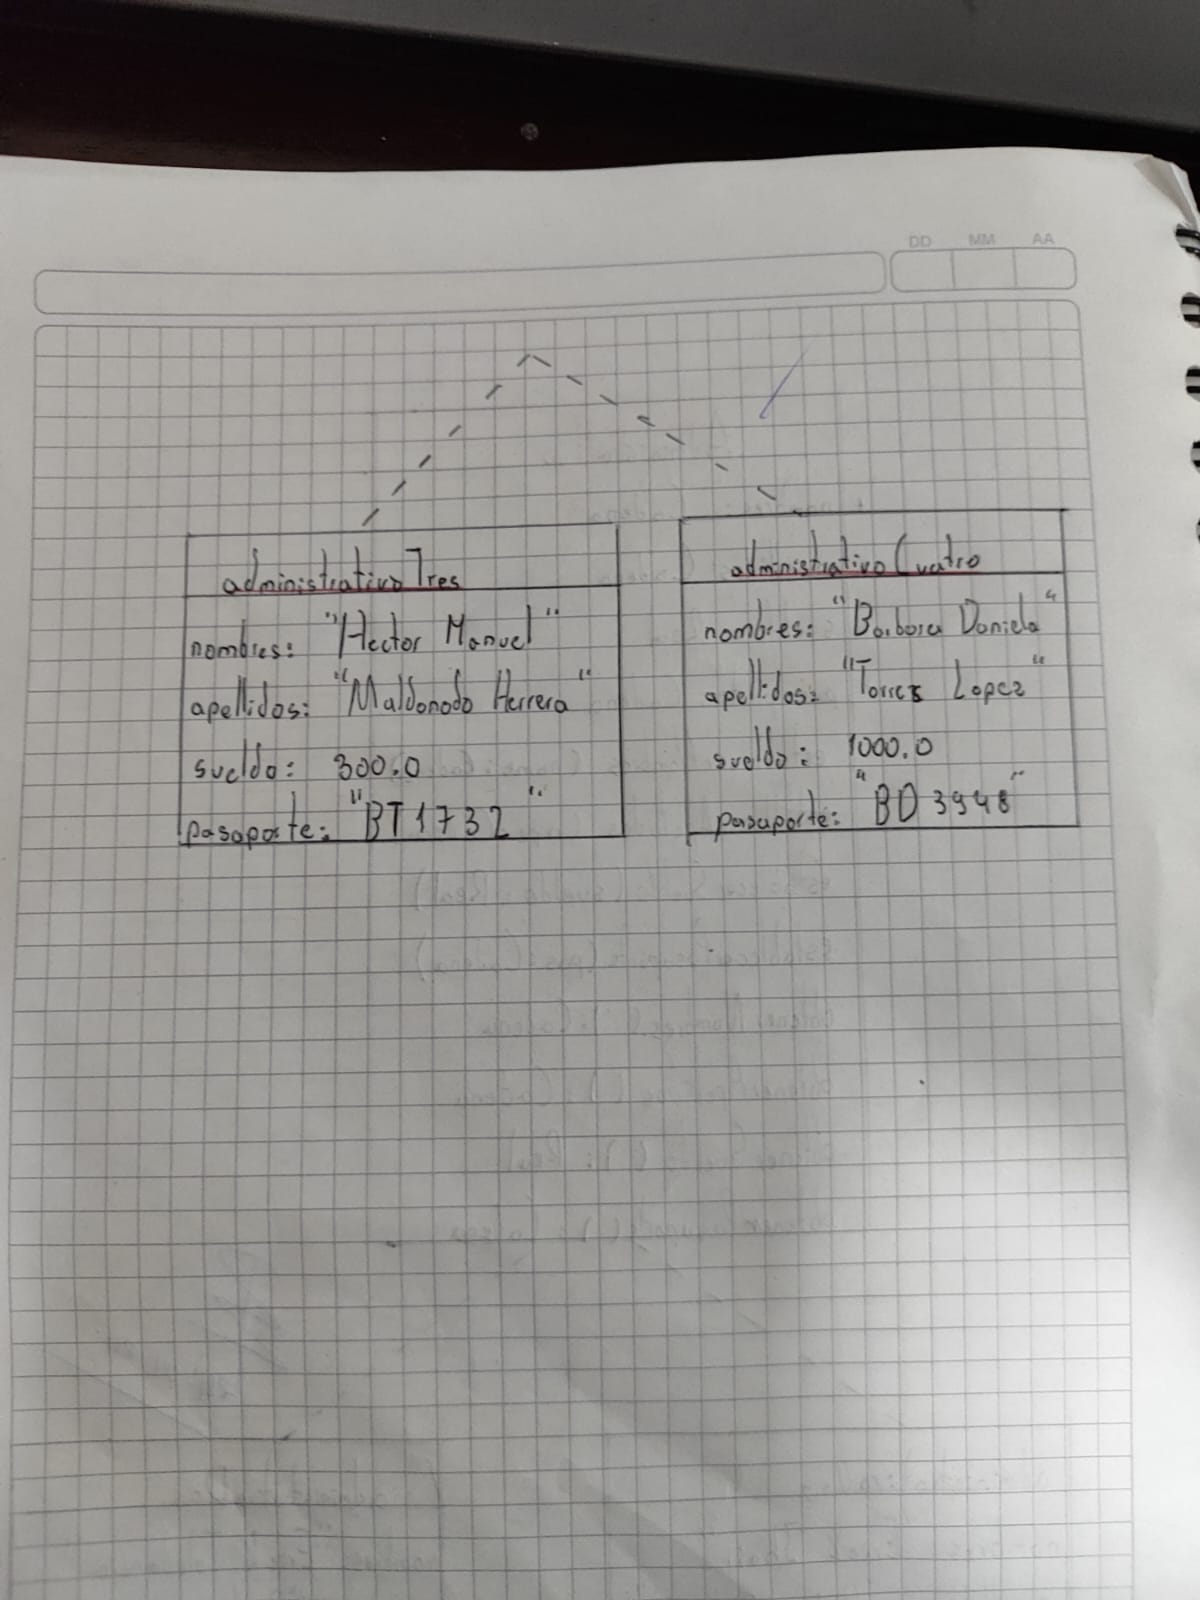 DD MM AA
administrativo Tres
nombres: "Hector Manuel"
apellidos: "Maldonado Herrera"
sueldo: 300.0
pasaporte: "BT1732"
administrativo Cuatro
nombres: "Barbara Daniela"
apellidos: "Torres Lopez"
sueldo: 1000.0
pasaporte: "BD3948"